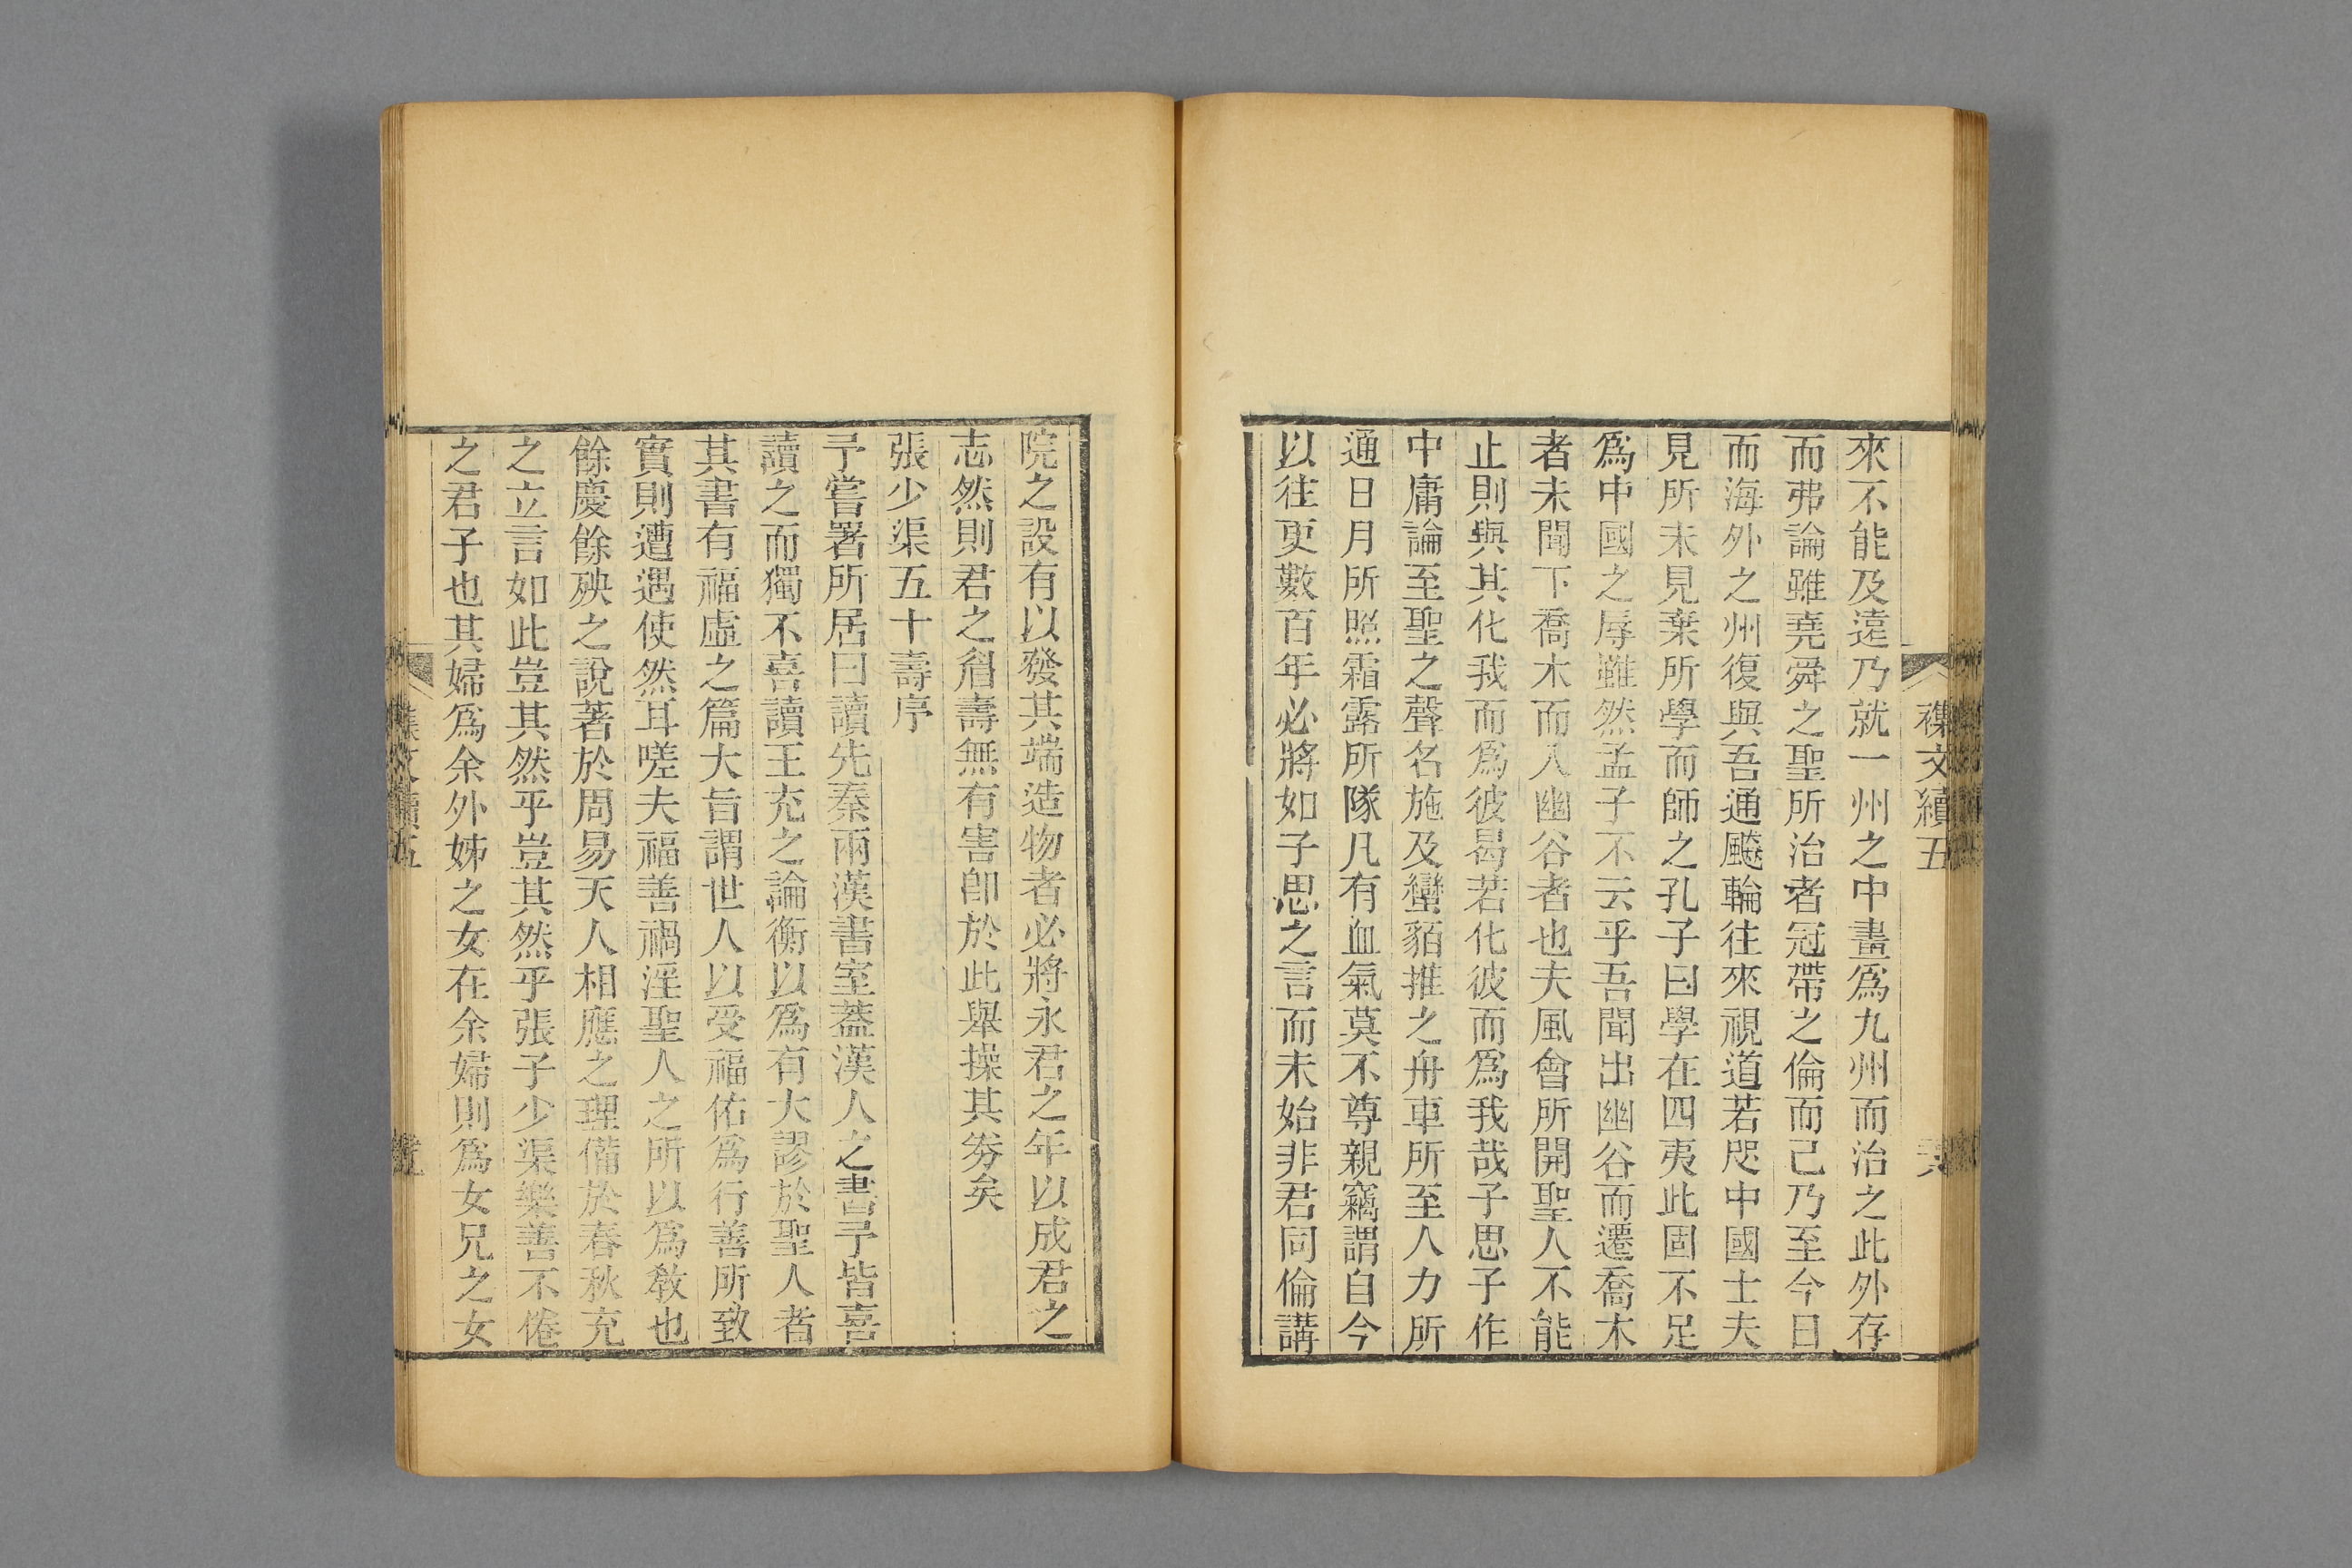 襍文續五
來不能及遠乃就一州之中畫爲九州而治之此外存
而弗論雖堯舜之聖所治者冠帶之倫而已乃至今日
而海外之州復與吾通飈輪往來視道若咫中國士夫
見所未見棄所學而師之孔子曰學在四夷此固不足
爲中國之辱雖然孟子不云乎吾聞出幽谷而遷喬木
者未聞下喬木而入幽谷者也夫風會所開聖人不能
止則與其化我而爲彼曷若化彼而爲我哉子思子作
中庸論至聖之聲名施及蠻貊推之舟車所至人力所
通日月所照霜露所隊凡有血氣莫不尊親竊謂自今
以往更數百年必將如子思之言而未始非君同倫講
院之設有以發其端造物者必將永君之年以成君之
志然則君之眉壽無有害卽於此舉操其券矣
張少渠五十壽序
予嘗署所居曰讀先秦兩漢書室蓋漢人之書予皆喜
讀之而獨不喜讀王充之論衡以爲有大謬於聖人者
其書有福虛之篇大旨謂世人以受福佑爲行善所致
實則遭遇使然耳嗟夫福善禍淫聖人之所以爲敎也
餘慶餘殃之說著於周易天人相應之理備於春秋充
之立言如此豈其然乎豈其然乎張子少渠樂善不倦
之君子也其婦爲余外姊之女在余婦則爲女兄之女